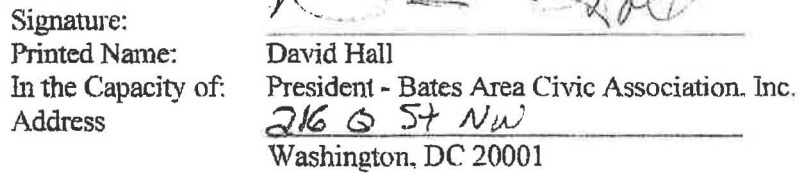 Signature:
Printed Name: David Hall
In the Capacity of: President - Bates Area Civic Association, Inc.
Address 216 Q St NW
Washington, DC 20001